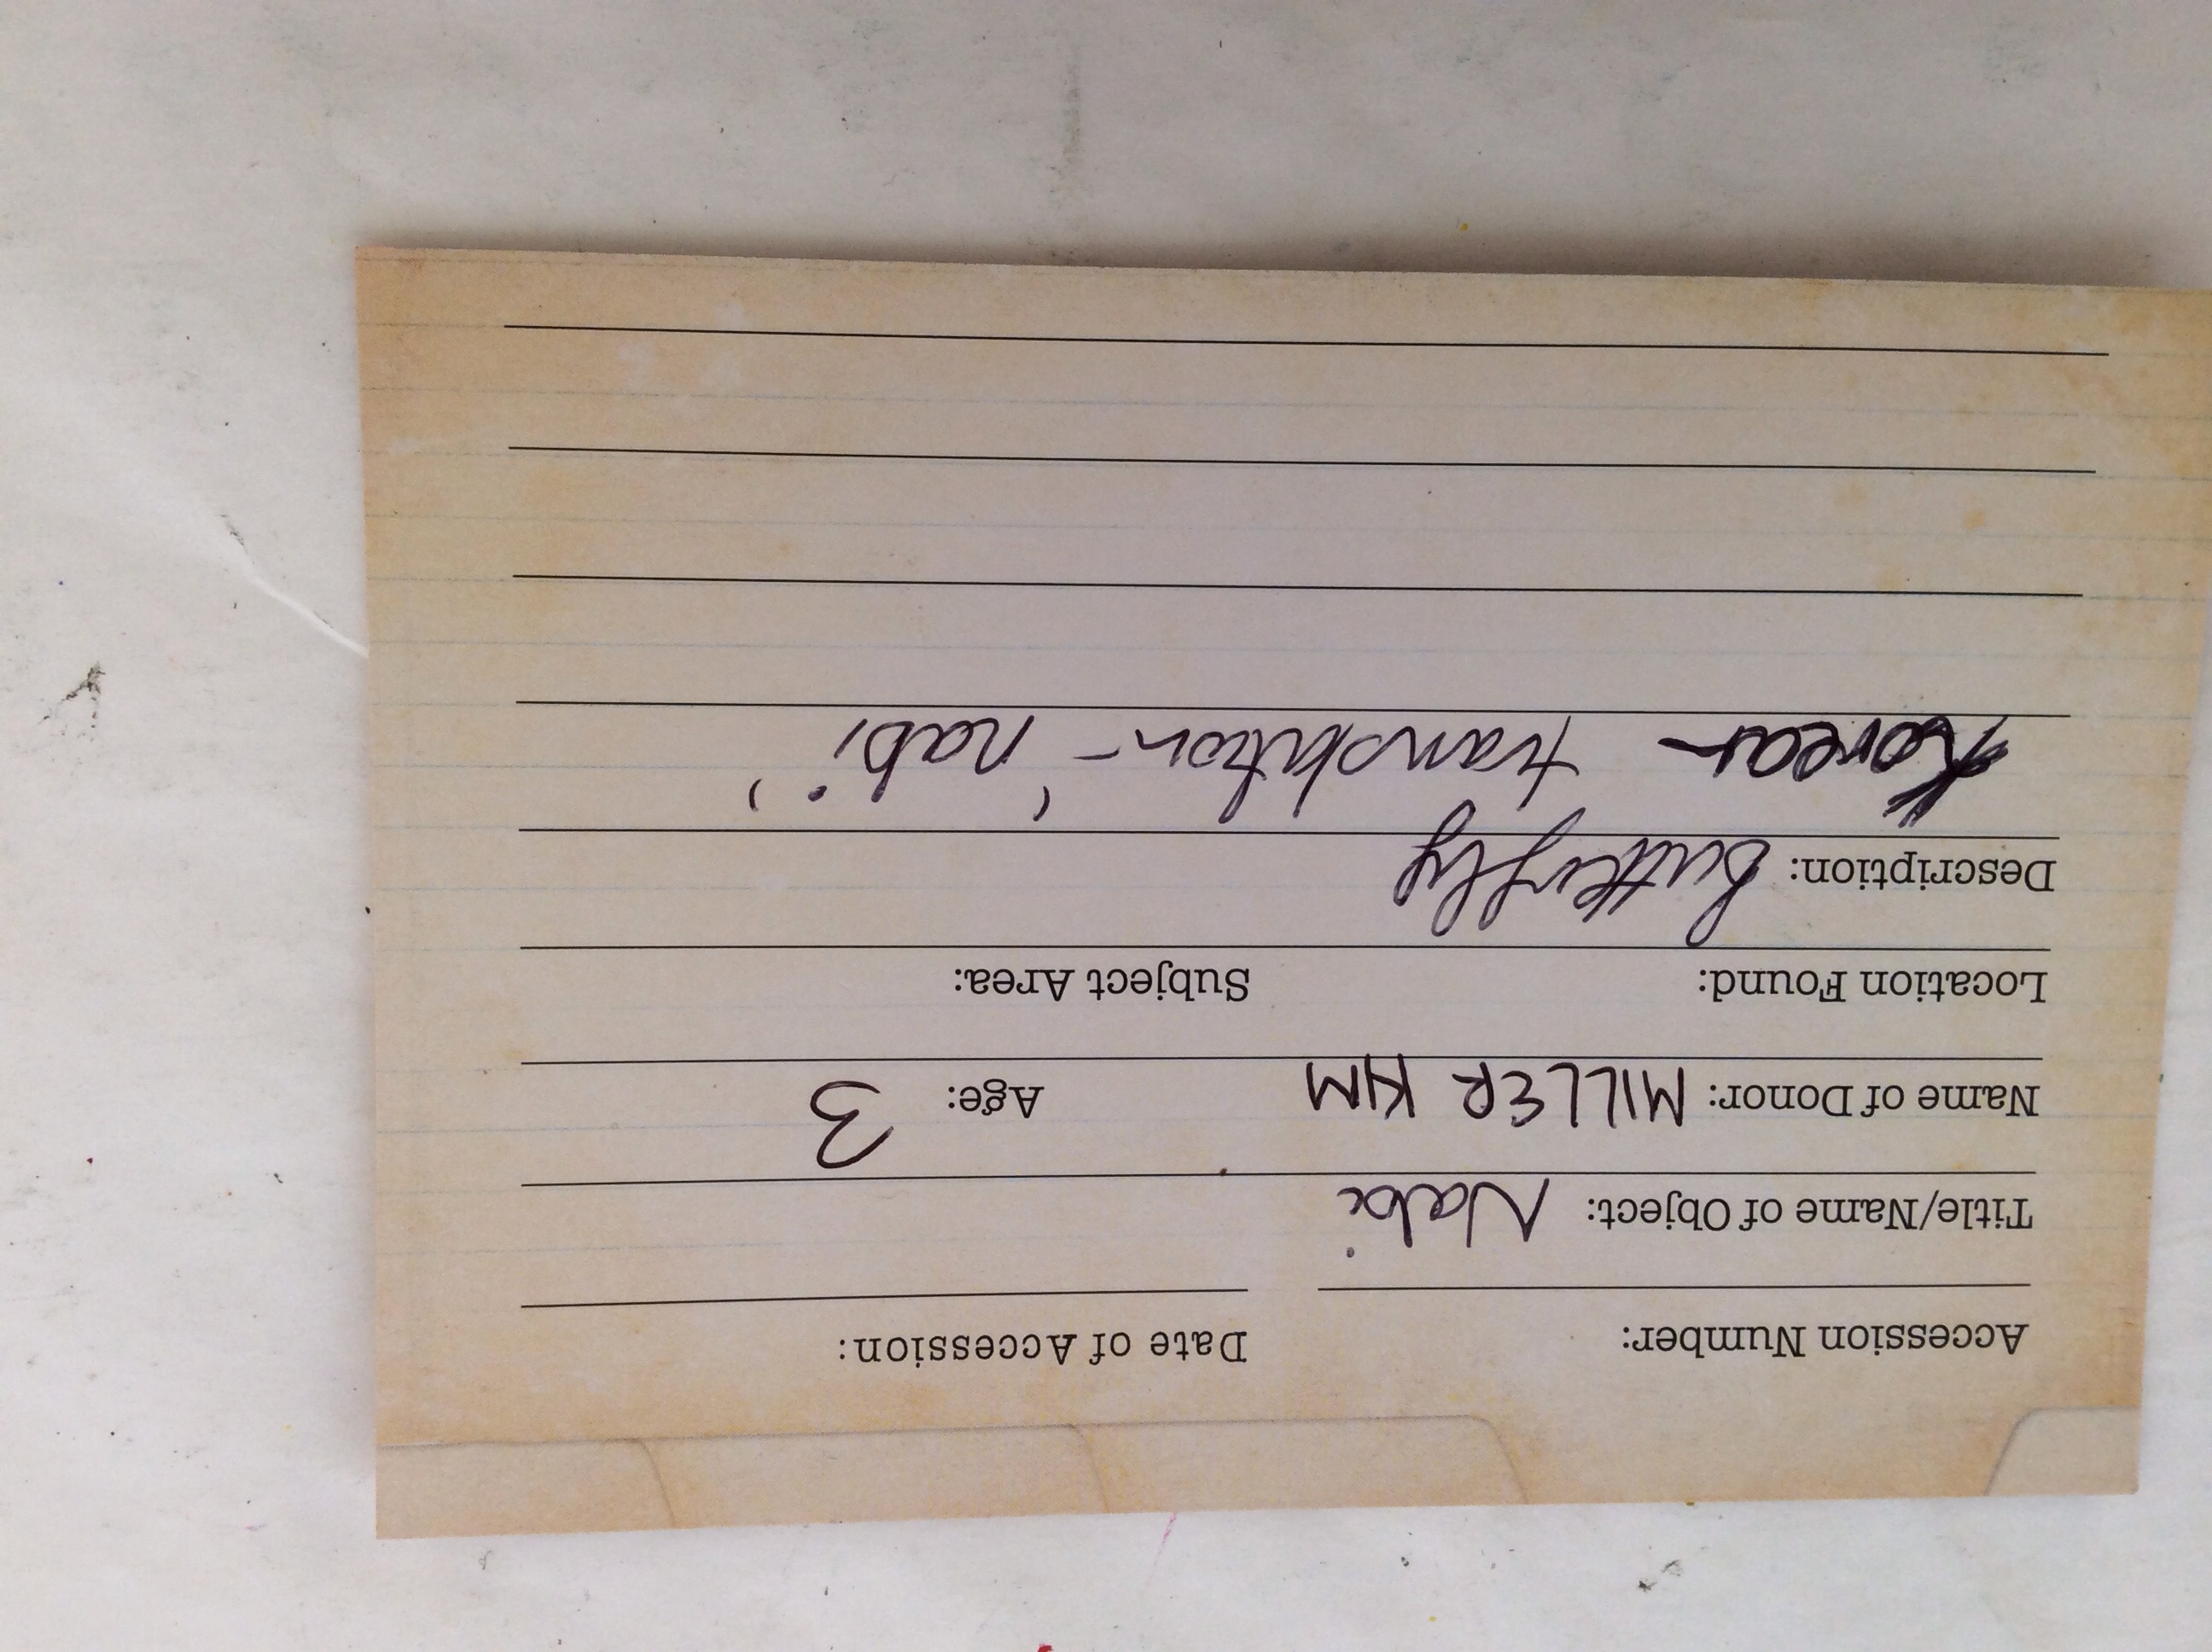 Accession Number: Date of Accession:
Title/Name of Object: Nabi
Name of Donor: MILLER KIM Age: 3
Location Found: Subject Area:
Description: Butterfly
Korean translation - 'nabi'